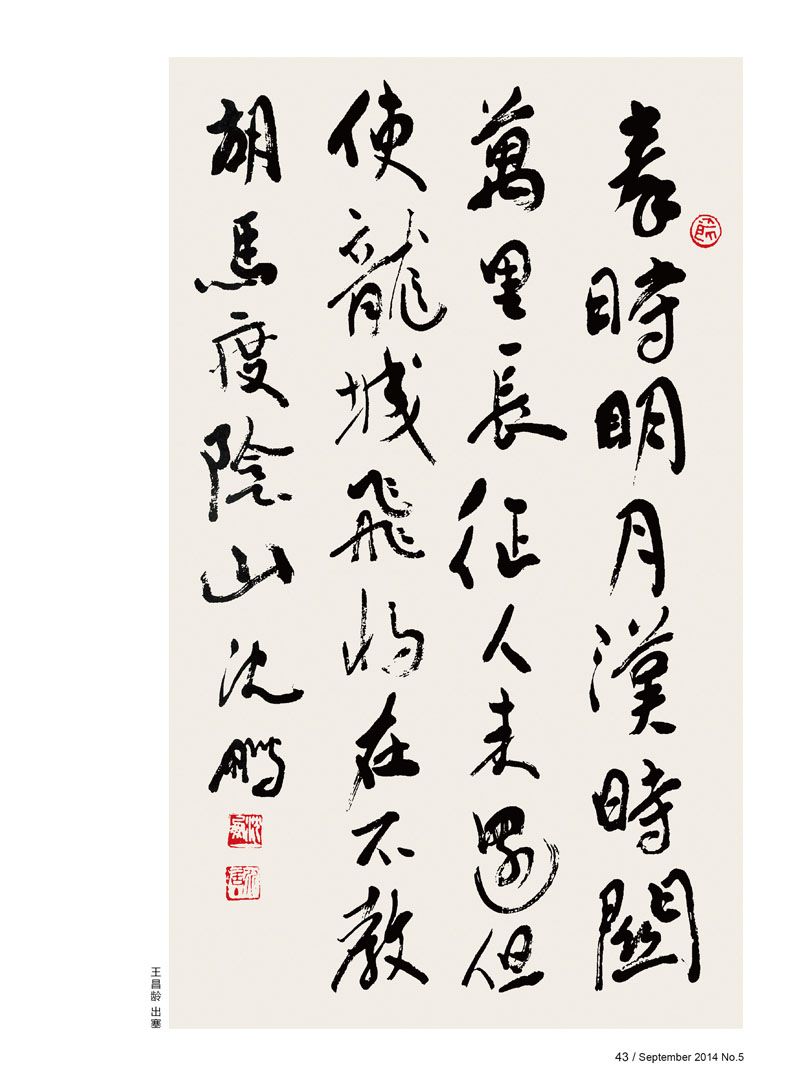 秦時明月漢時關
萬里長征人未還但
使龍城飛將在不教
胡馬度陰山沈鵬
王昌龄 出塞
43 / September 2014 No.5